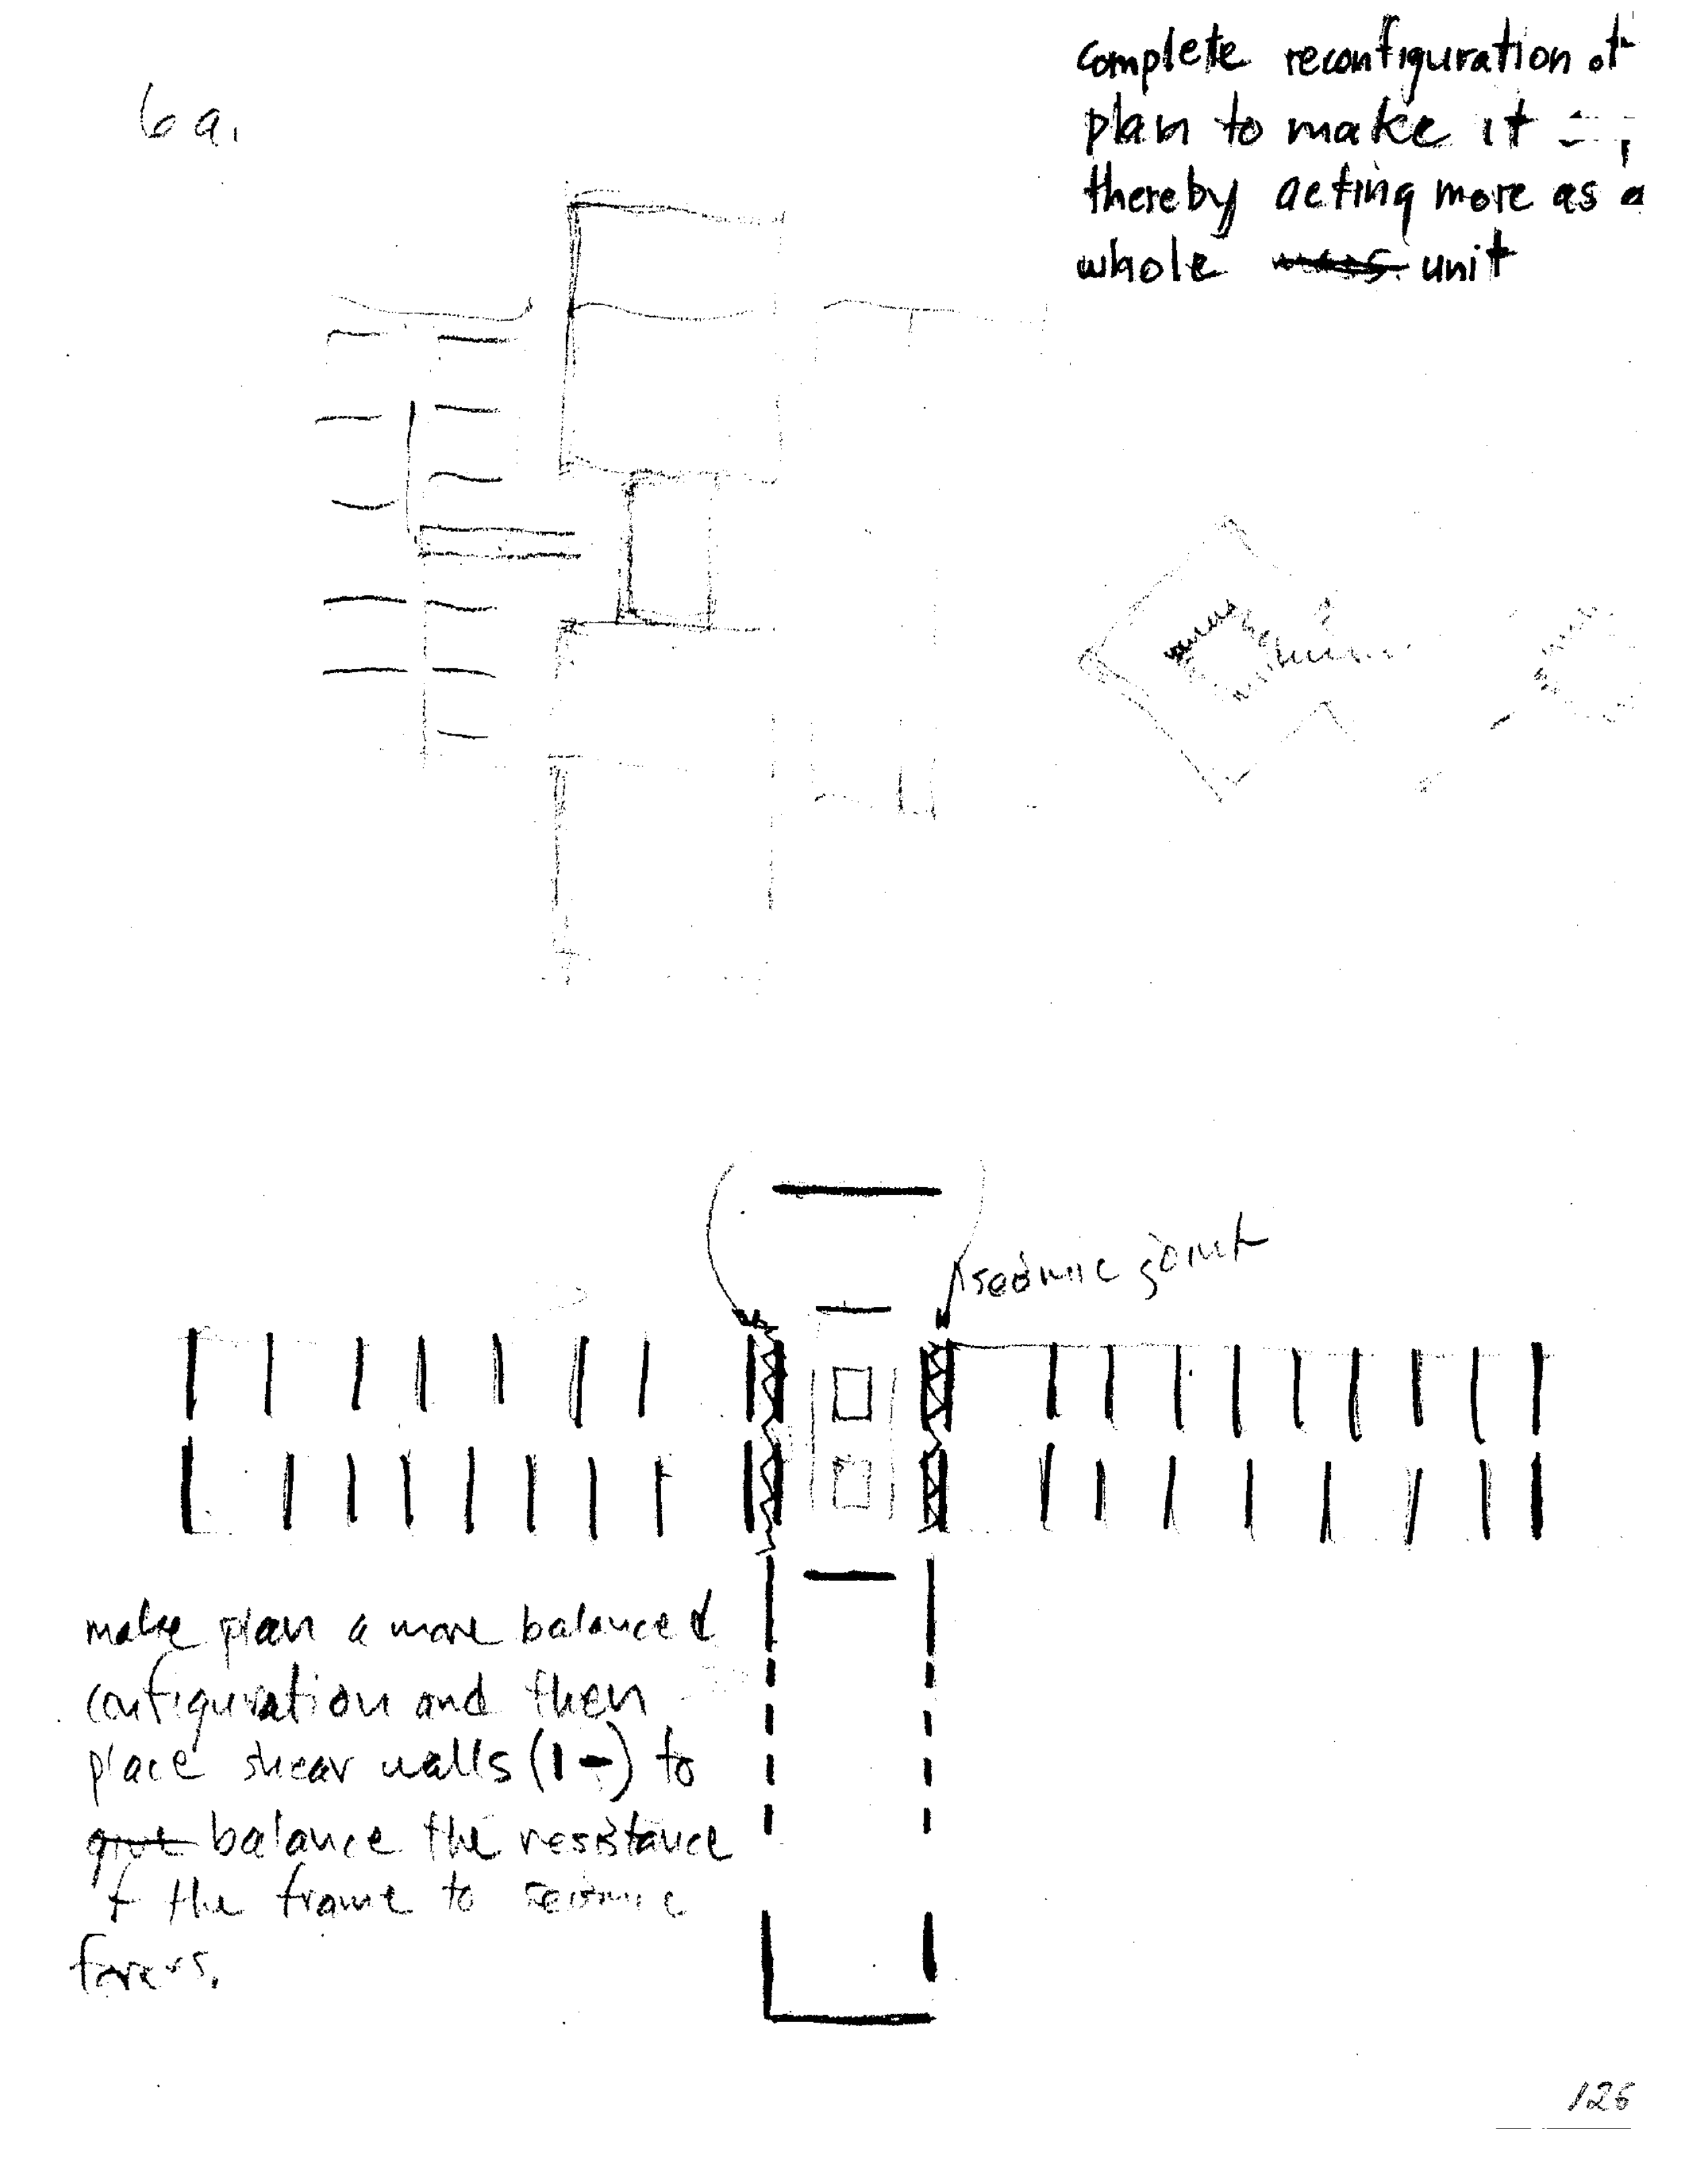 6a.
complete reconfiguration of
plan to make it
thereby acting more as a
whole unit
seismic joint
make plan a more balanced
configuration and then
place shear walls (I -) to
give balance the resistance
of the frame to seismic
forces.
126